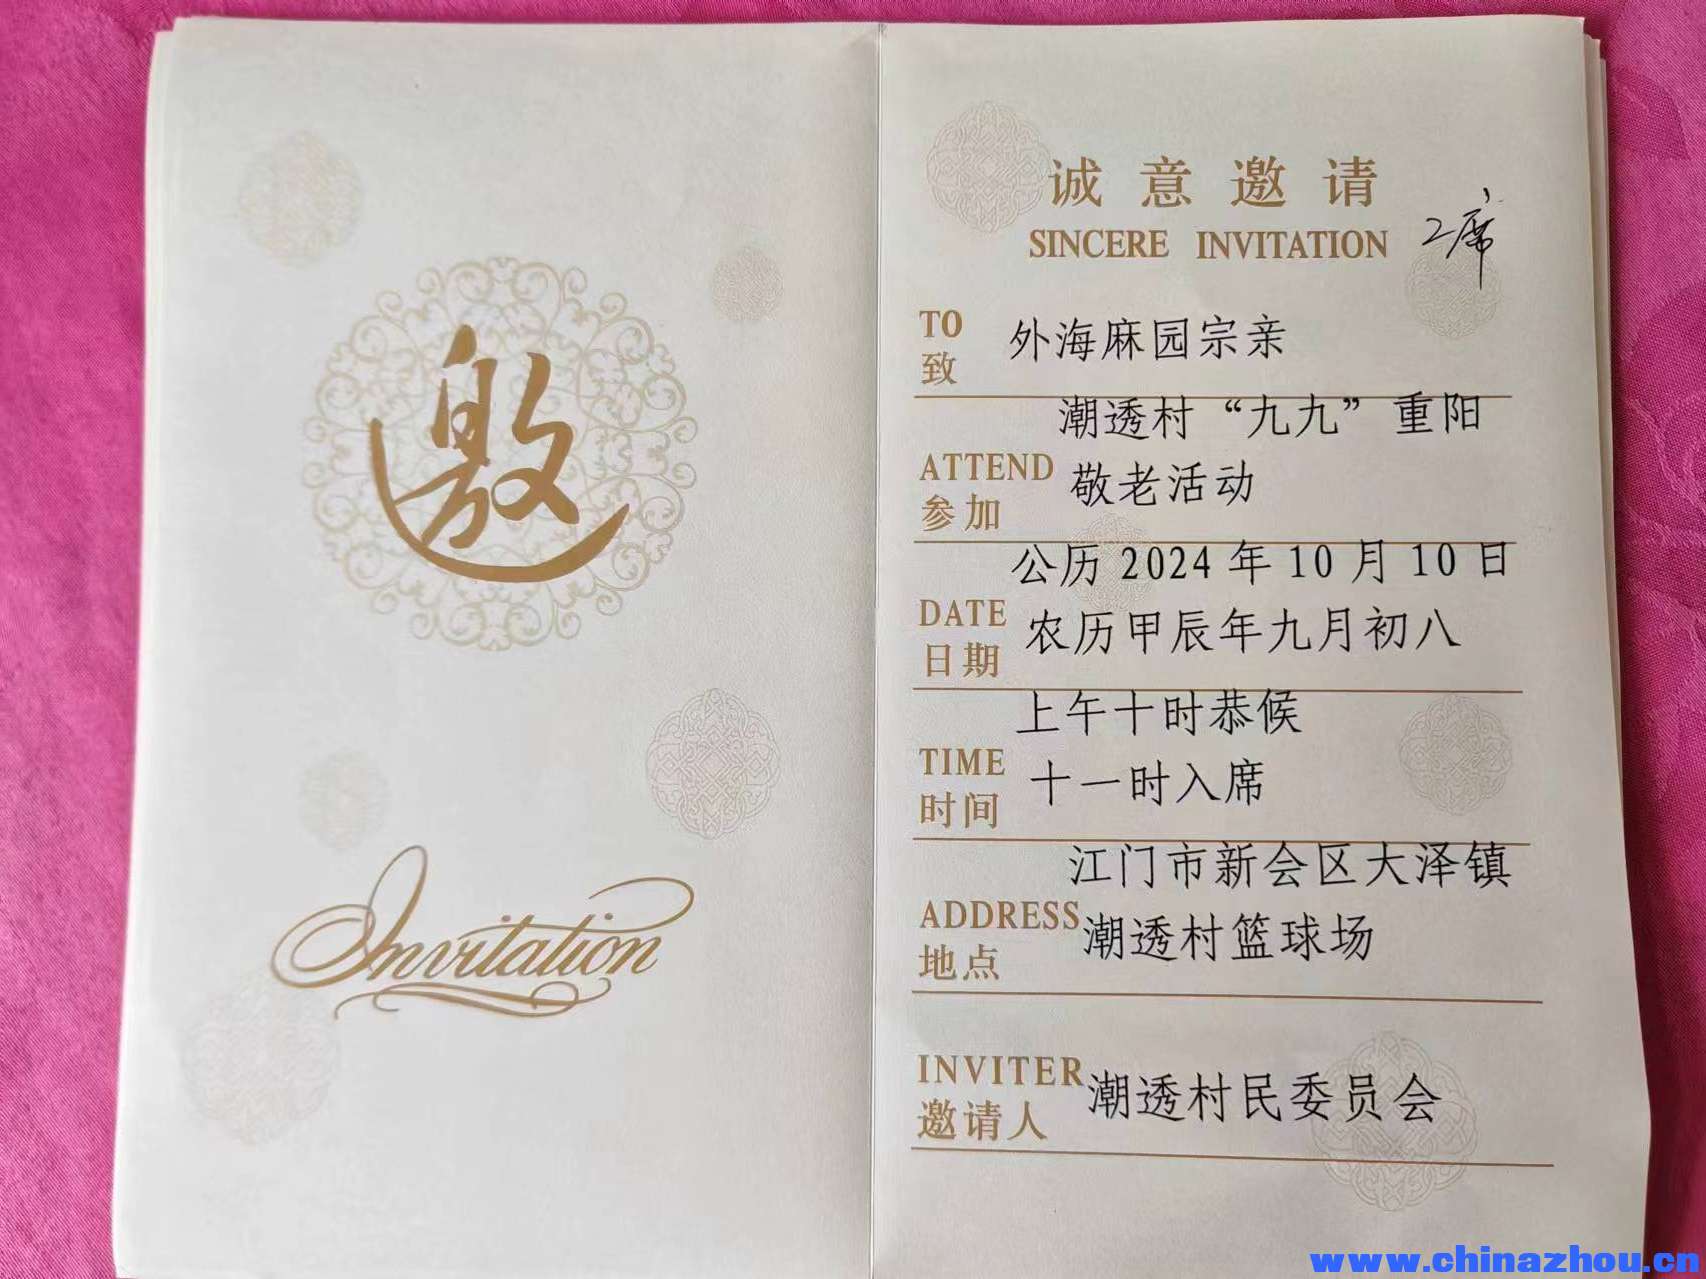 邀
Invitation
诚意邀请
SINCERE INVITATION
2席
TO
致
外海麻园宗亲
潮透村“九九”重阳
ATTEND
参加
敬老活动
公历2024年10月10日
DATE
日期
农历甲辰年九月初八
上午十时恭候
TIME
时间
十一时入席
江门市新会区大泽镇
ADDRESS
地点
潮透村篮球场
INVITER
邀请人
潮透村民委员会
www.chinazhou.cn